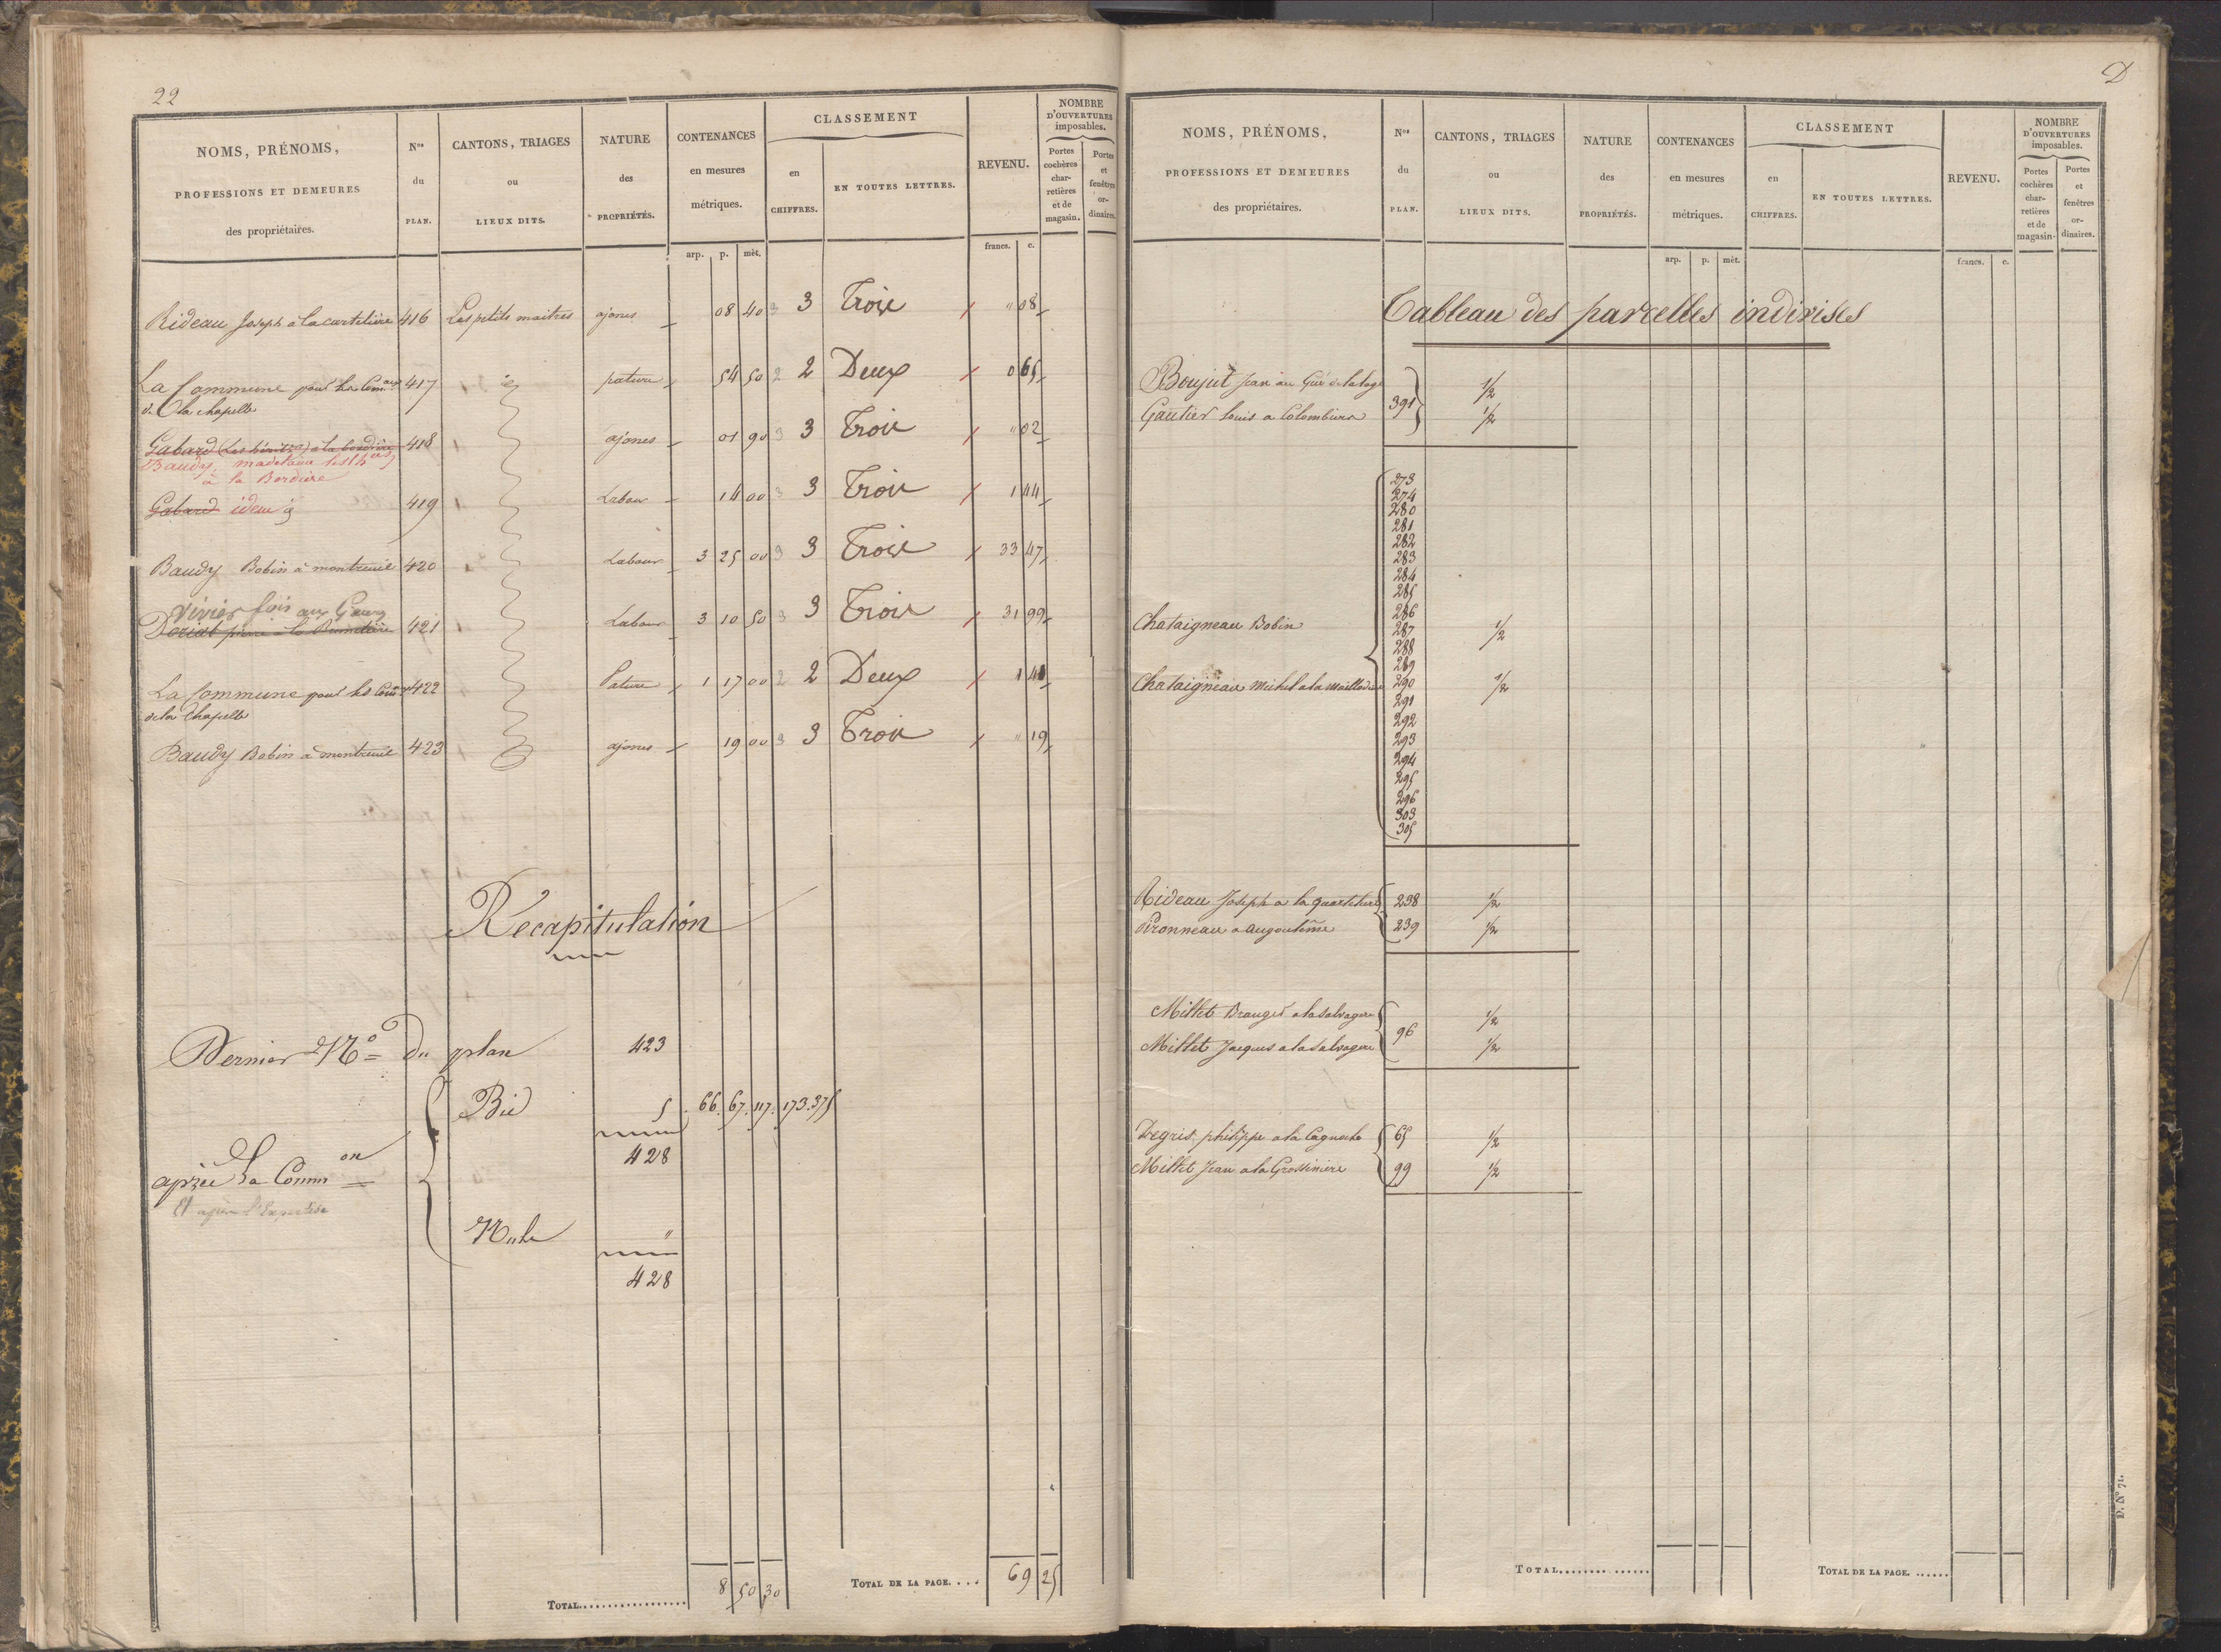 22
NOMS, PRÉNOMS,
PROFESSIONS ET DEMEURES
des propriétaires.
Nos
du
PLAN.
CANTONS, TRIAGES
ou
LIEUX DITS.
NATURE
des
PROPRIÉTÉS.
CONTENANCES
en mesures
métriques.
arp. p. mèt.
CLASSEMENT
en
CHIFFRES.
EN TOUTES LETTRES.
REVENU.
francs. c.
NOMBRE
D'OUVERTURES
imposables.
Portes
cochères
char-
retières
et de
magasin.
Portes
et
fenêtres
or-
dinaires.
Rideau Joseph à la carteliere 416 Les petits maitres ajones 08 40 3 3 Trois " 08
La Commune pour les Com.aux 417 id pature 54 50 2 2 Deux 0 65
de la chapelle
Gabard (Les héritiers) a la bordiere 418 ajones 01 90 3 3 Trois " 02
Baudy, madelaine les h ers
à la Bordiere
Gabard idem 419 Labour 14 00 3 3 Trois 1 44
Baudy Bobin à montreuil 420 Labour 3 25 00 3 3 Trois 33 47
Vivier fois aux Gaury
pierre a la 421 Labour 3 10 50 3 3 Trois 31 99
La Commune pour les Com 422 Pature 1 17 00 2 2 Deux 1 41
de la Chapelle
Baudy Bobin a montreuil 423 ajones 19 00 3 3 Trois " 19
Récapitulation
Dernier No du plan 423
Bis 5 . 66. 67. 117. 173. 375
428
après La Comm on
Et après l'Expertise
Nuls "
428
TOTAL.................. 8 50 30
TOTAL DE LA PAGE.... 69 25
D
NOMS, PRÉNOMS,
PROFESSIONS ET DEMEURES
des propriétaires.
Nos
du
PLAN.
CANTONS, TRIAGES
ou
LIEUX DITS.
NATURE
des
PROPRIÉTÉS.
CONTENANCES
en mesures
métriques.
arp. p. mèt.
CLASSEMENT
en
CHIFFRES.
EN TOUTES LETTRES.
REVENU.
francs. c.
NOMBRE
D'OUVERTURES
imposables.
Portes
cochères
char-
retières
et de
magasin.
Portes
et
fenêtres
or-
dinaires.
Tableau des parcelles indivises
Boujut Jean au Gué de la loge 391 1/2
Gautier Louis a Colombiers 1/2
273
274
280
281
282
283
284
285
286
Chataigneau Bobin 287 1/2
288
289
Chataigneau Michel a la 290 1/2
291
292
293
294
295
296
303
305
Rideau Joseph a la quarteliere 238 1/2
Pironneau a angoulême 239 1/2
Millet Branger a la Salvagere 96 1/2
Millet Jacques a la Salvagere 1/2
Degris philippe a la 65 1/2
Millet Jean a la Grossinière 99 1/2
TOTAL..............
TOTAL DE LA PAGE. ......
D. No 71.